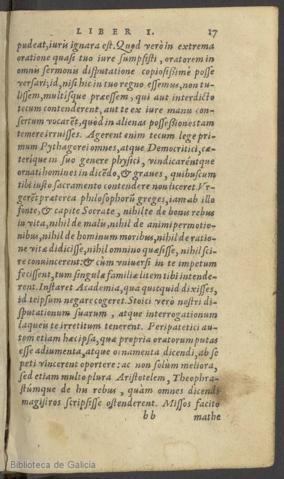 LIBER I. 17
pudeat, iuris ignara est. Quod verò in extrema
oratione quasi tuo iure sumpsisti, oratorem in
omnis sermonis disputatione copiosissimè posse
versari; id, nisi hic in tuo regno essemus, non tu-
lissem, multisque præessem, qui aut interdicto
tecum contenderent, aut te ex iure manu con-
sertum vocarēt, quòd in alienas possessiones tam
temere irruisses. Agerent enim tecum lege pri-
mum Pythagorei omnes, atque Democritici, cæ-
terique in suo genere physici, vindicaréntque
ornati homines in dicēdo, & graues, quibuscum
tibi iusto sacramento contendere non liceret. Vr-
gerēt præterea philosophorū greges, iam ab illo
fonte, & capite Socrate, nihil te de bonis rebus
in vita, nihil de malis, nihil de animi permotio-
nibus, nihil de hominum moribus, nihil de ratio-
ne vitæ didicisse, nihil omnino quæsisse, nihil sci-
re conuincerent: & cùm vniuersi in te impetum
fecissent, tum singulæ familiæ litem tibi intende-
rent. Instaret Academia, quæ quitquid dixisses,
id teipsum negare cogeret. Stoici verò nostri di-
sputationum suarum, atque interrogationum
laqueis te irretitum tenerent. Peripatetici au-
tom etiam hæc ipsa, quæ propria oratorum putas
esse adiumenta, atque ornamenta dicendi, ab se
peti vincerent oportere: ac non solum meliora,
sed etiam multo plura Aristotelem, Theophra-
stúmque de his rebus, quàm omnes dicendi
magistros scripsisse ostenderent. Missos facio
bb mathe
Biblioteca de Galicia